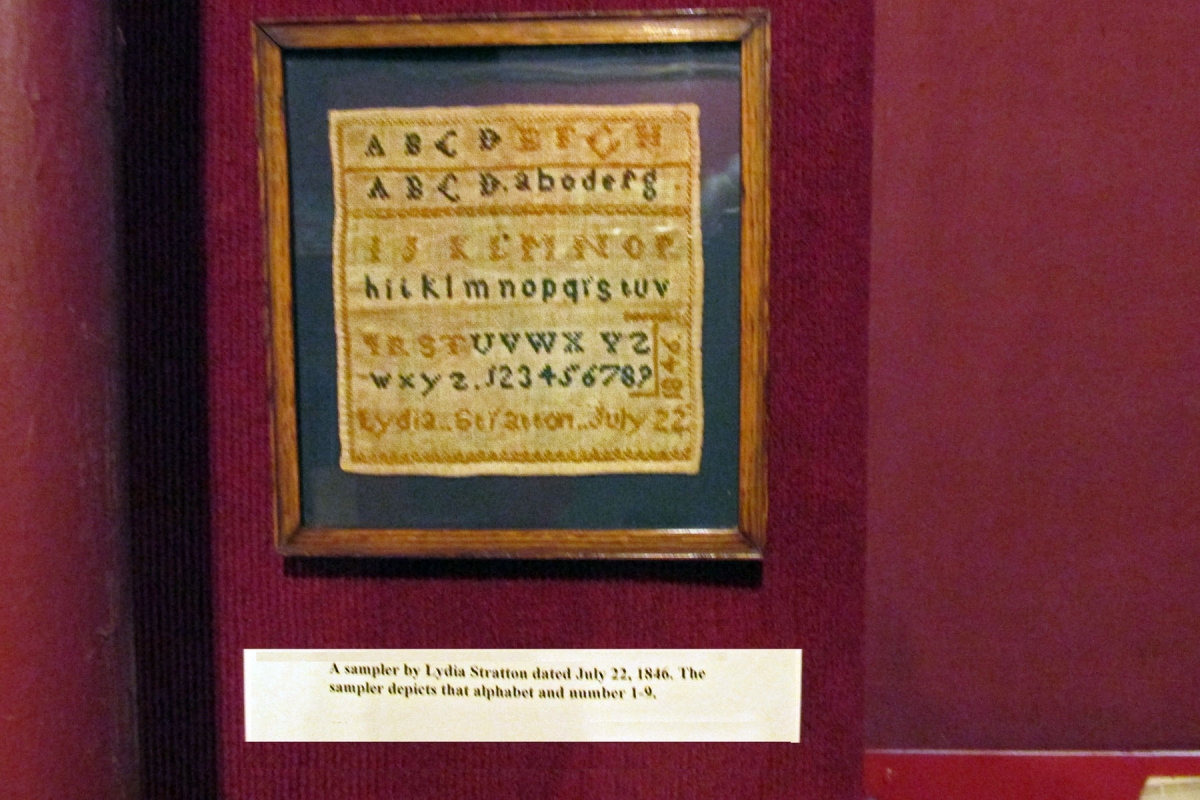 A B C D E F G H
A B C D. a b c d e f g
I J K L M N O P
h i i k l m n o p q r s t u v
Q R S T U V W X Y Z
w x y z. 1 2 3 4 5 6 7 8 9
1846
Lydia.. Stratton.. July 22
A sampler by Lydia Stratton dated July 22, 1846. The
sampler depicts that alphabet and number 1-9.